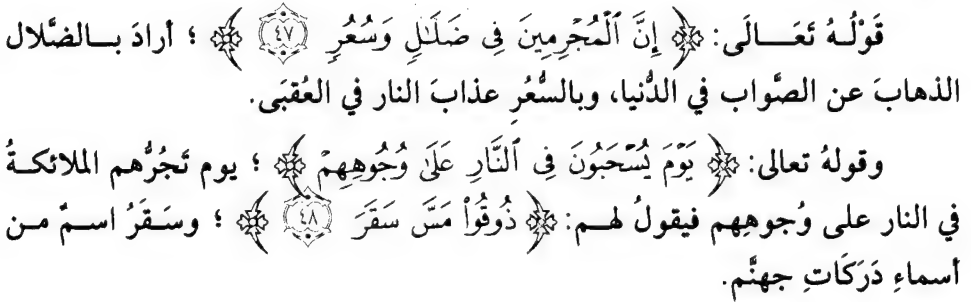 قَوْلُهُ تَعَـــالَى: ﴿ إِنَّ ٱلْمُجْرِمِينَ فِى ضَلَـٰلٍ وَسُعُرٍ ﴿٤٧﴾ ﴾ ؛ أرادَ بــالضَّلال
الذهابَ عن الصَّواب في الدُّنيا، وبالسُّعُرِ عذابَ النار في العُقبَى.
وقولهُ تعالى: ﴿ يَوْمَ يُسْحَبُونَ فِى ٱلنَّارِ عَلَىٰ وُجُوهِهِمْ ﴾ ؛ يوم تَجُرُّهم الملائكـةُ
في النار على وُجوهِهم فيقولُ لهـم: ﴿ ذُوقُوا۟ مَسَّ سَقَرَ ﴿٤٨﴾ ﴾ ؛ وسَقَرُ اسـمٌ مـن
أسماءِ دَرَكَاتِ جهنَّم.